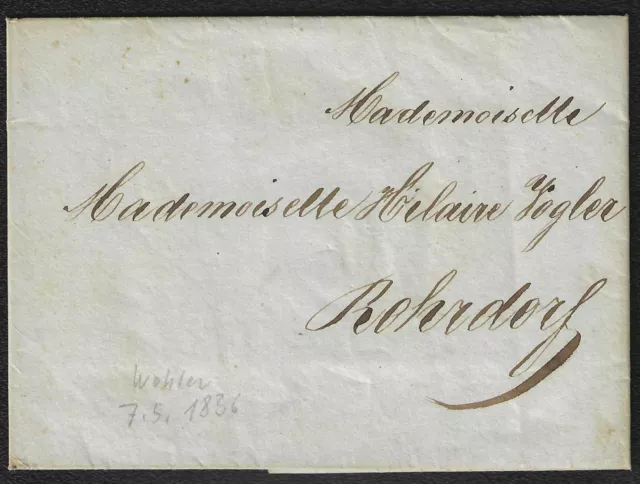 Mademoiselle
Mademoiselle Hilaire Vogler
Rohrdorf
Wohlen
7.5. 1836